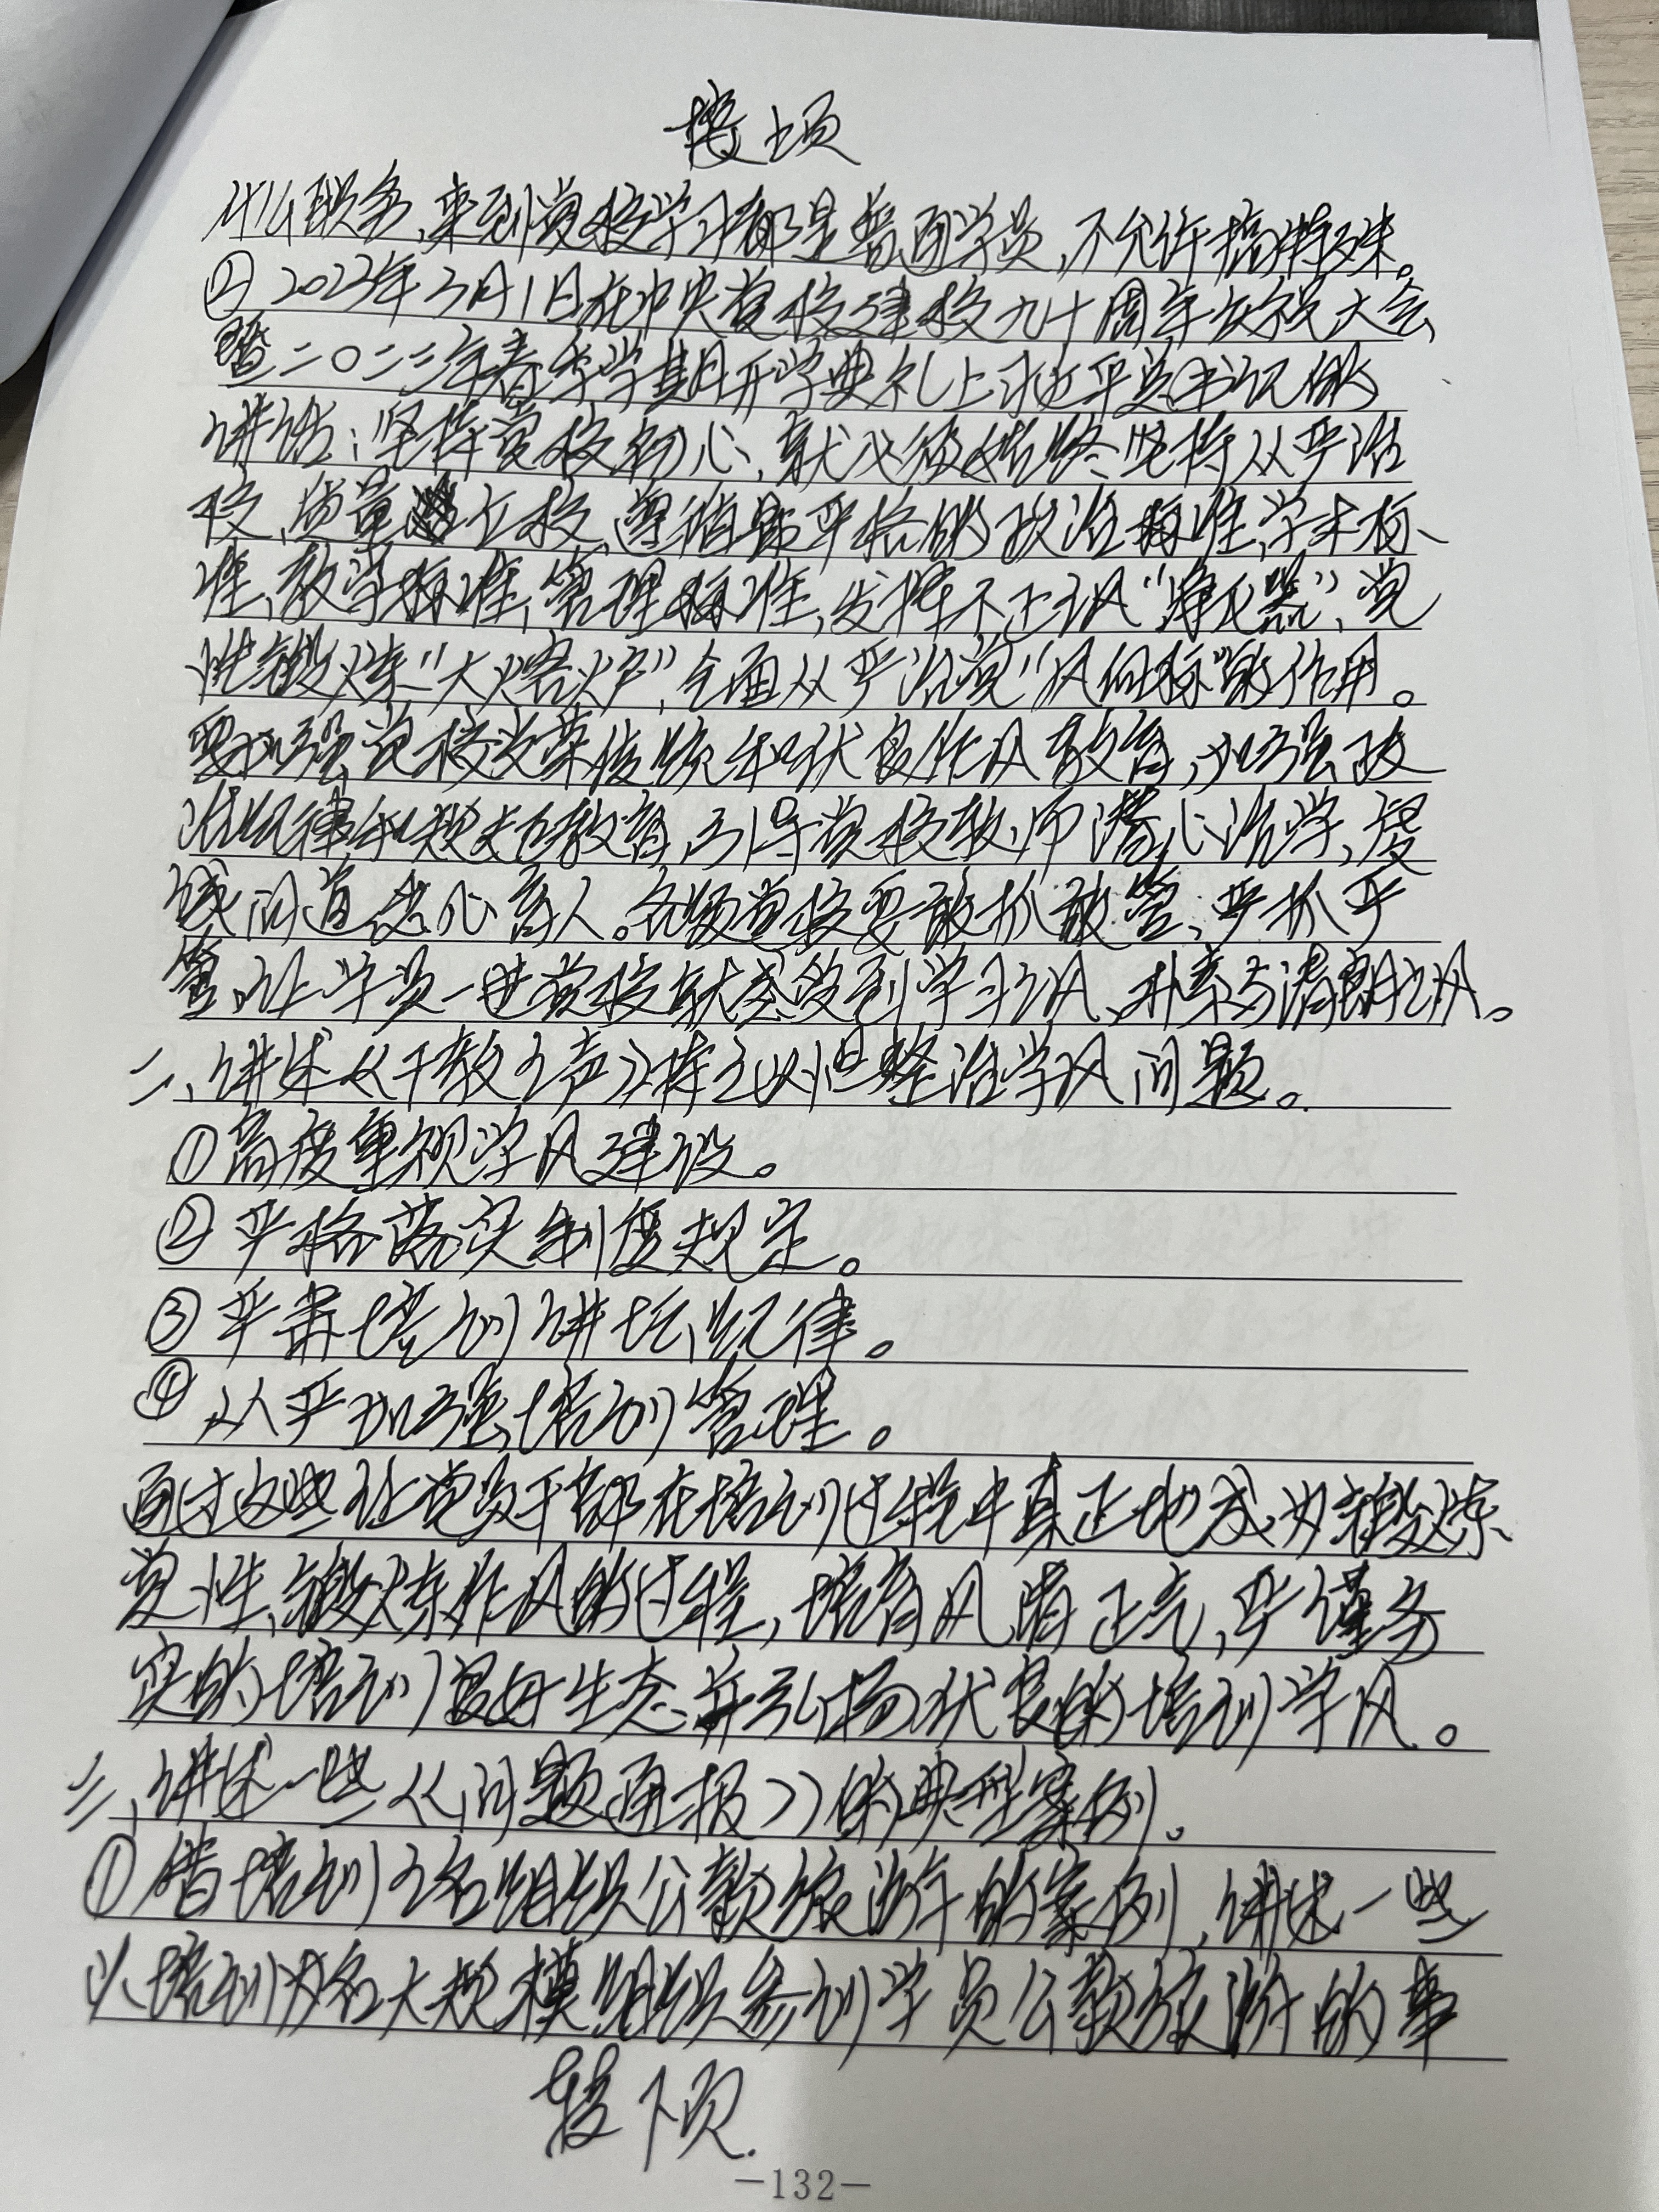 接上页
什么职务,来到党校学习都是普通学员,不允许搞特殊。
②2023年3月1日在中央党校建校九十周年庆祝大会
暨二〇二三年春季学期开学典礼上习近平总书记的
讲话:坚持党校初心,就必须始终坚持从严治
校、质量立校,遵循最严格的政治标准、学术标
准、教学标准、管理标准,发挥不正之风“净化器”、党
性锻炼“大熔炉”、全面从严治党“风向标”的作用。
要加强党校光荣传统和优良作风教育,加强政
治纪律和规矩教育,引导党校教师潜心治学、虔
诚问道、悉心育人。各级党校要敢抓敢管、严抓严
管,让学员一进党校就感受到学习之风、朴素与清朗之风。
二、讲述从干教之声持之以恒整治学风问题。
①高度重视学风建设。
②严格落实制度规定。
③严肃培训讲坛纪律。
④从严加强培训管理。
通过这些让党员干部在培训过程中真正地成为锻炼
党性、锻炼作风的过程,培育风清正气,严谨务
实的培训良好生态,并弘扬优良的培训学风。
三、讲述一些《问题通报》的典型案例。
①借培训之名组织公款旅游的案例,讲述一些
以培训为名大规模组织参训学员公款旅游的事
接下页.
-132-